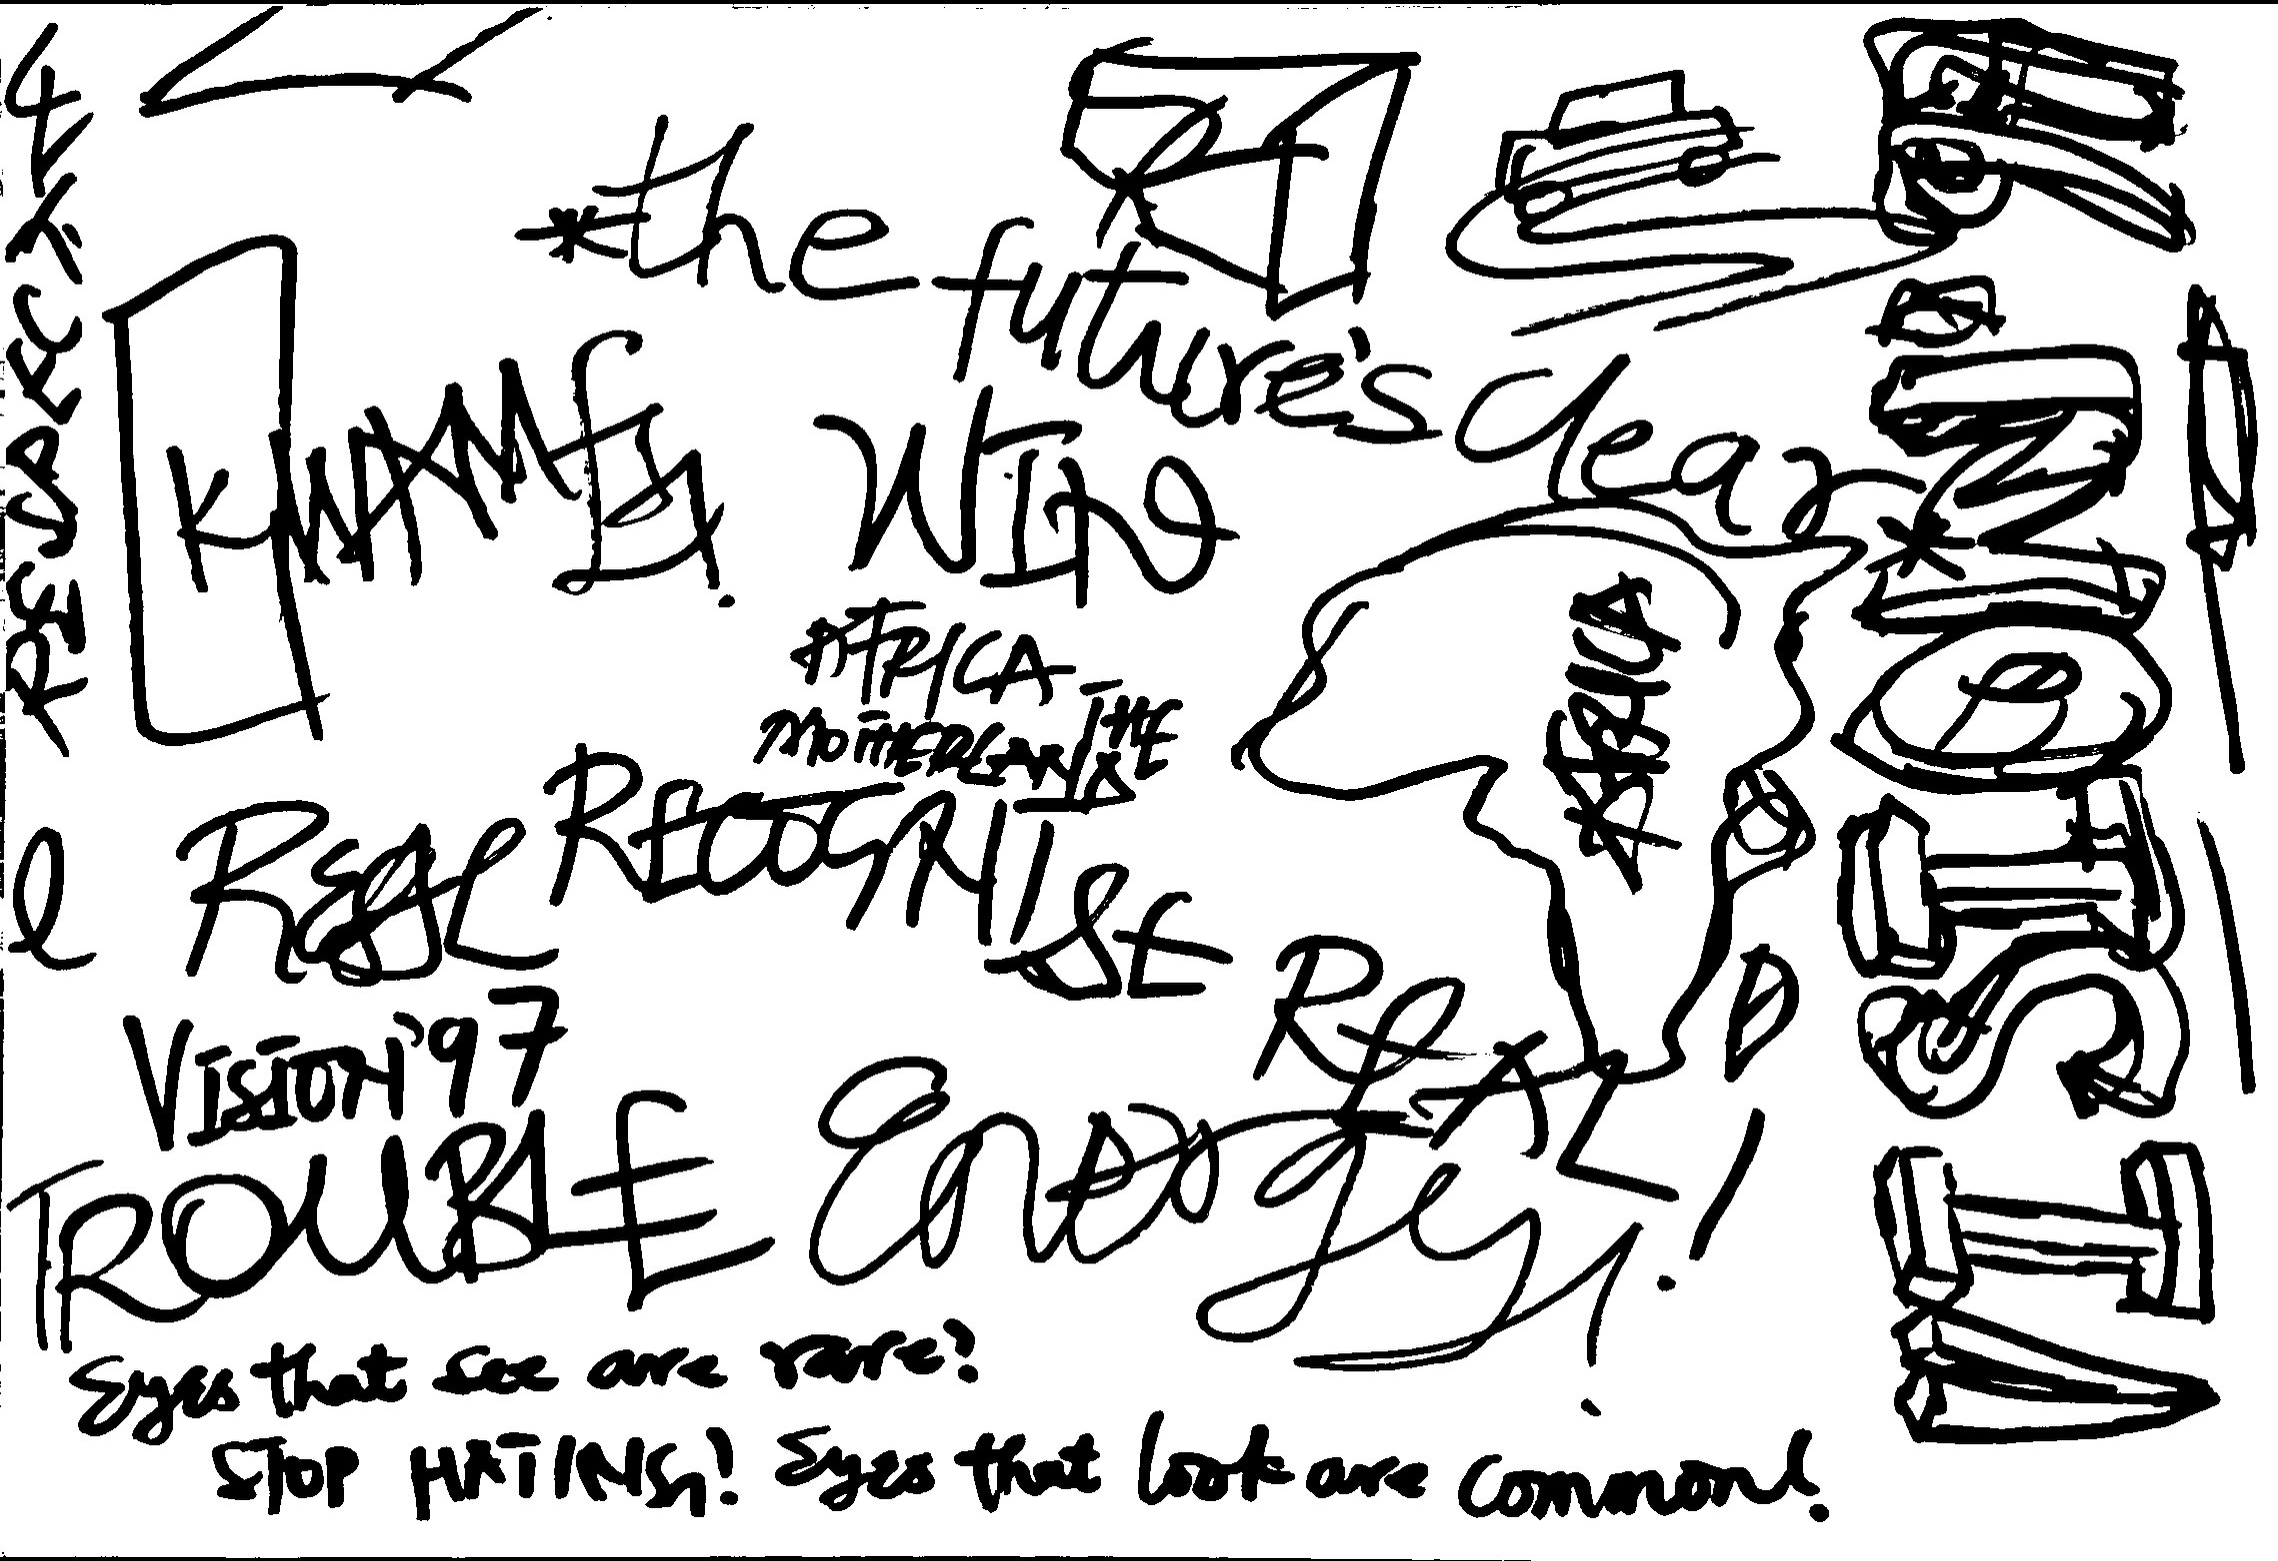 *the future's clear*
KWAME. WIN
AFRICA
THE
MOTHERLAND
AFRICA
REAL RECOGNISE REAL
VISION '97
TROUBLE Energy!
Eyes that see are rare?
STOP HATING! Eyes that look are common!
RESPECT